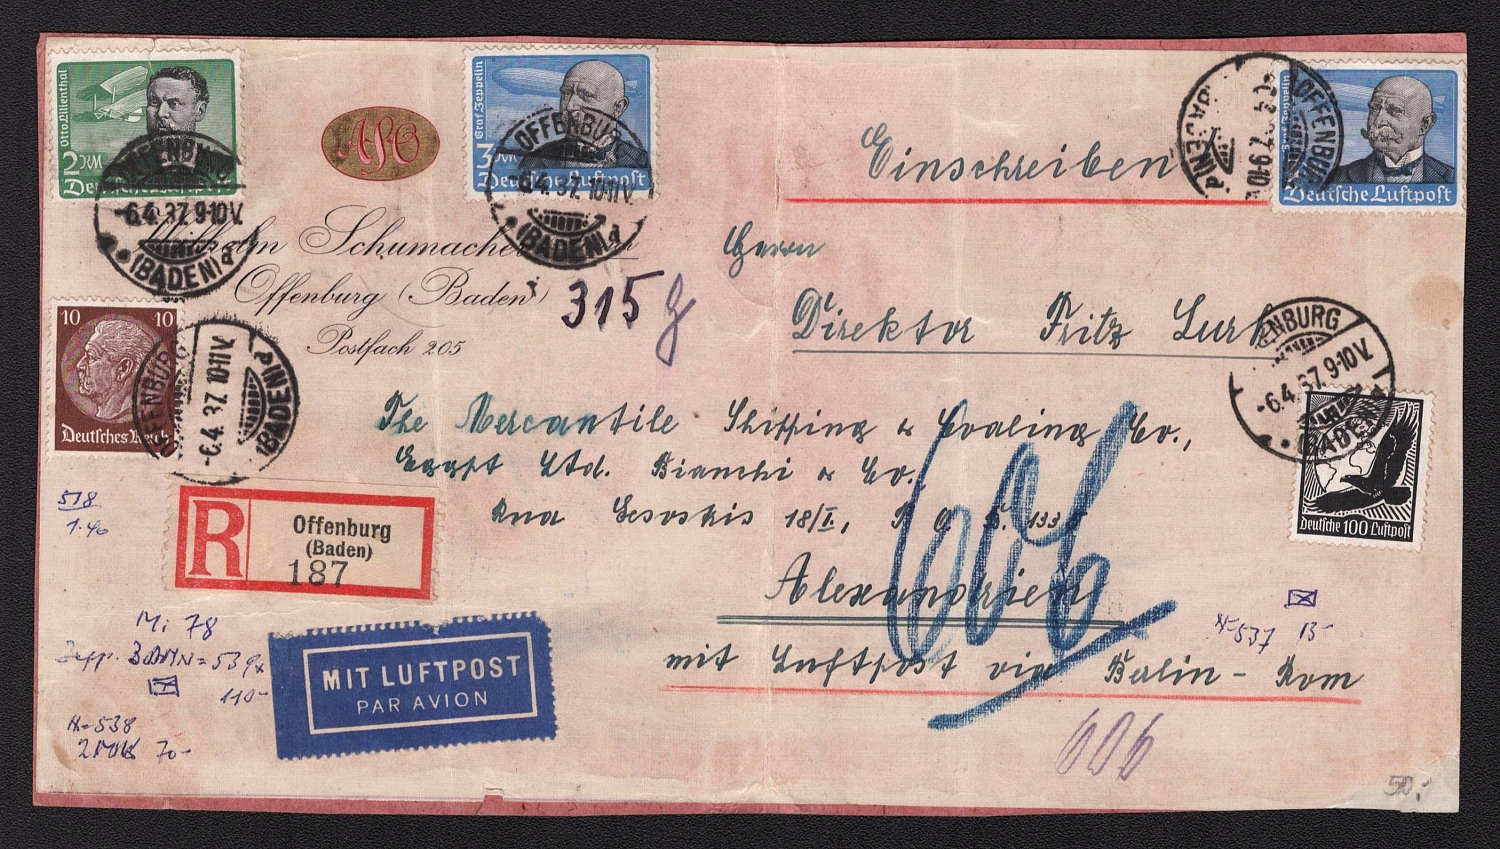 Otto Lilienthal
2 RM
Deutsche Luftpost
OFFENBURG
-6.4.37. 9-10 V.
(BADEN) d
Graf Zeppelin
3 RM
Deutsche Luftpost
OFFENBURG
-6.4.37. 10-11 V.
(BADEN) d
OFFENBURG
-6.4.37. 9-10 V.
(BADEN)
Graf Zeppelin
Deutsche Luftpost
Einschreiben
Wilhelm Schumacher
Offenburg (Baden)
Postfach 205
315 g
Herrn
Direktor Fritz Lurk
10 10
Deutsches Reich
OFFENBURG
-6.4.37. 10-11 V.
(BADEN)
OFFENBURG
-6.4.37. 9-10 V.
(BADEN)
Deutsche 100 Luftpost
The Mercantile Shipping & Coaling Co.,
Egypt Ltd. Bianchi & Co.
Rue Sesostris 18/I, P.O.B.
Alexandrien
mit Luftpost via Berlin - Rom
606
606
R
Offenburg
(Baden)
187
MIT LUFTPOST
PAR AVION
518
1.40
Mi 78
539x
110-
N-538
70-
N-537 13-
50,-